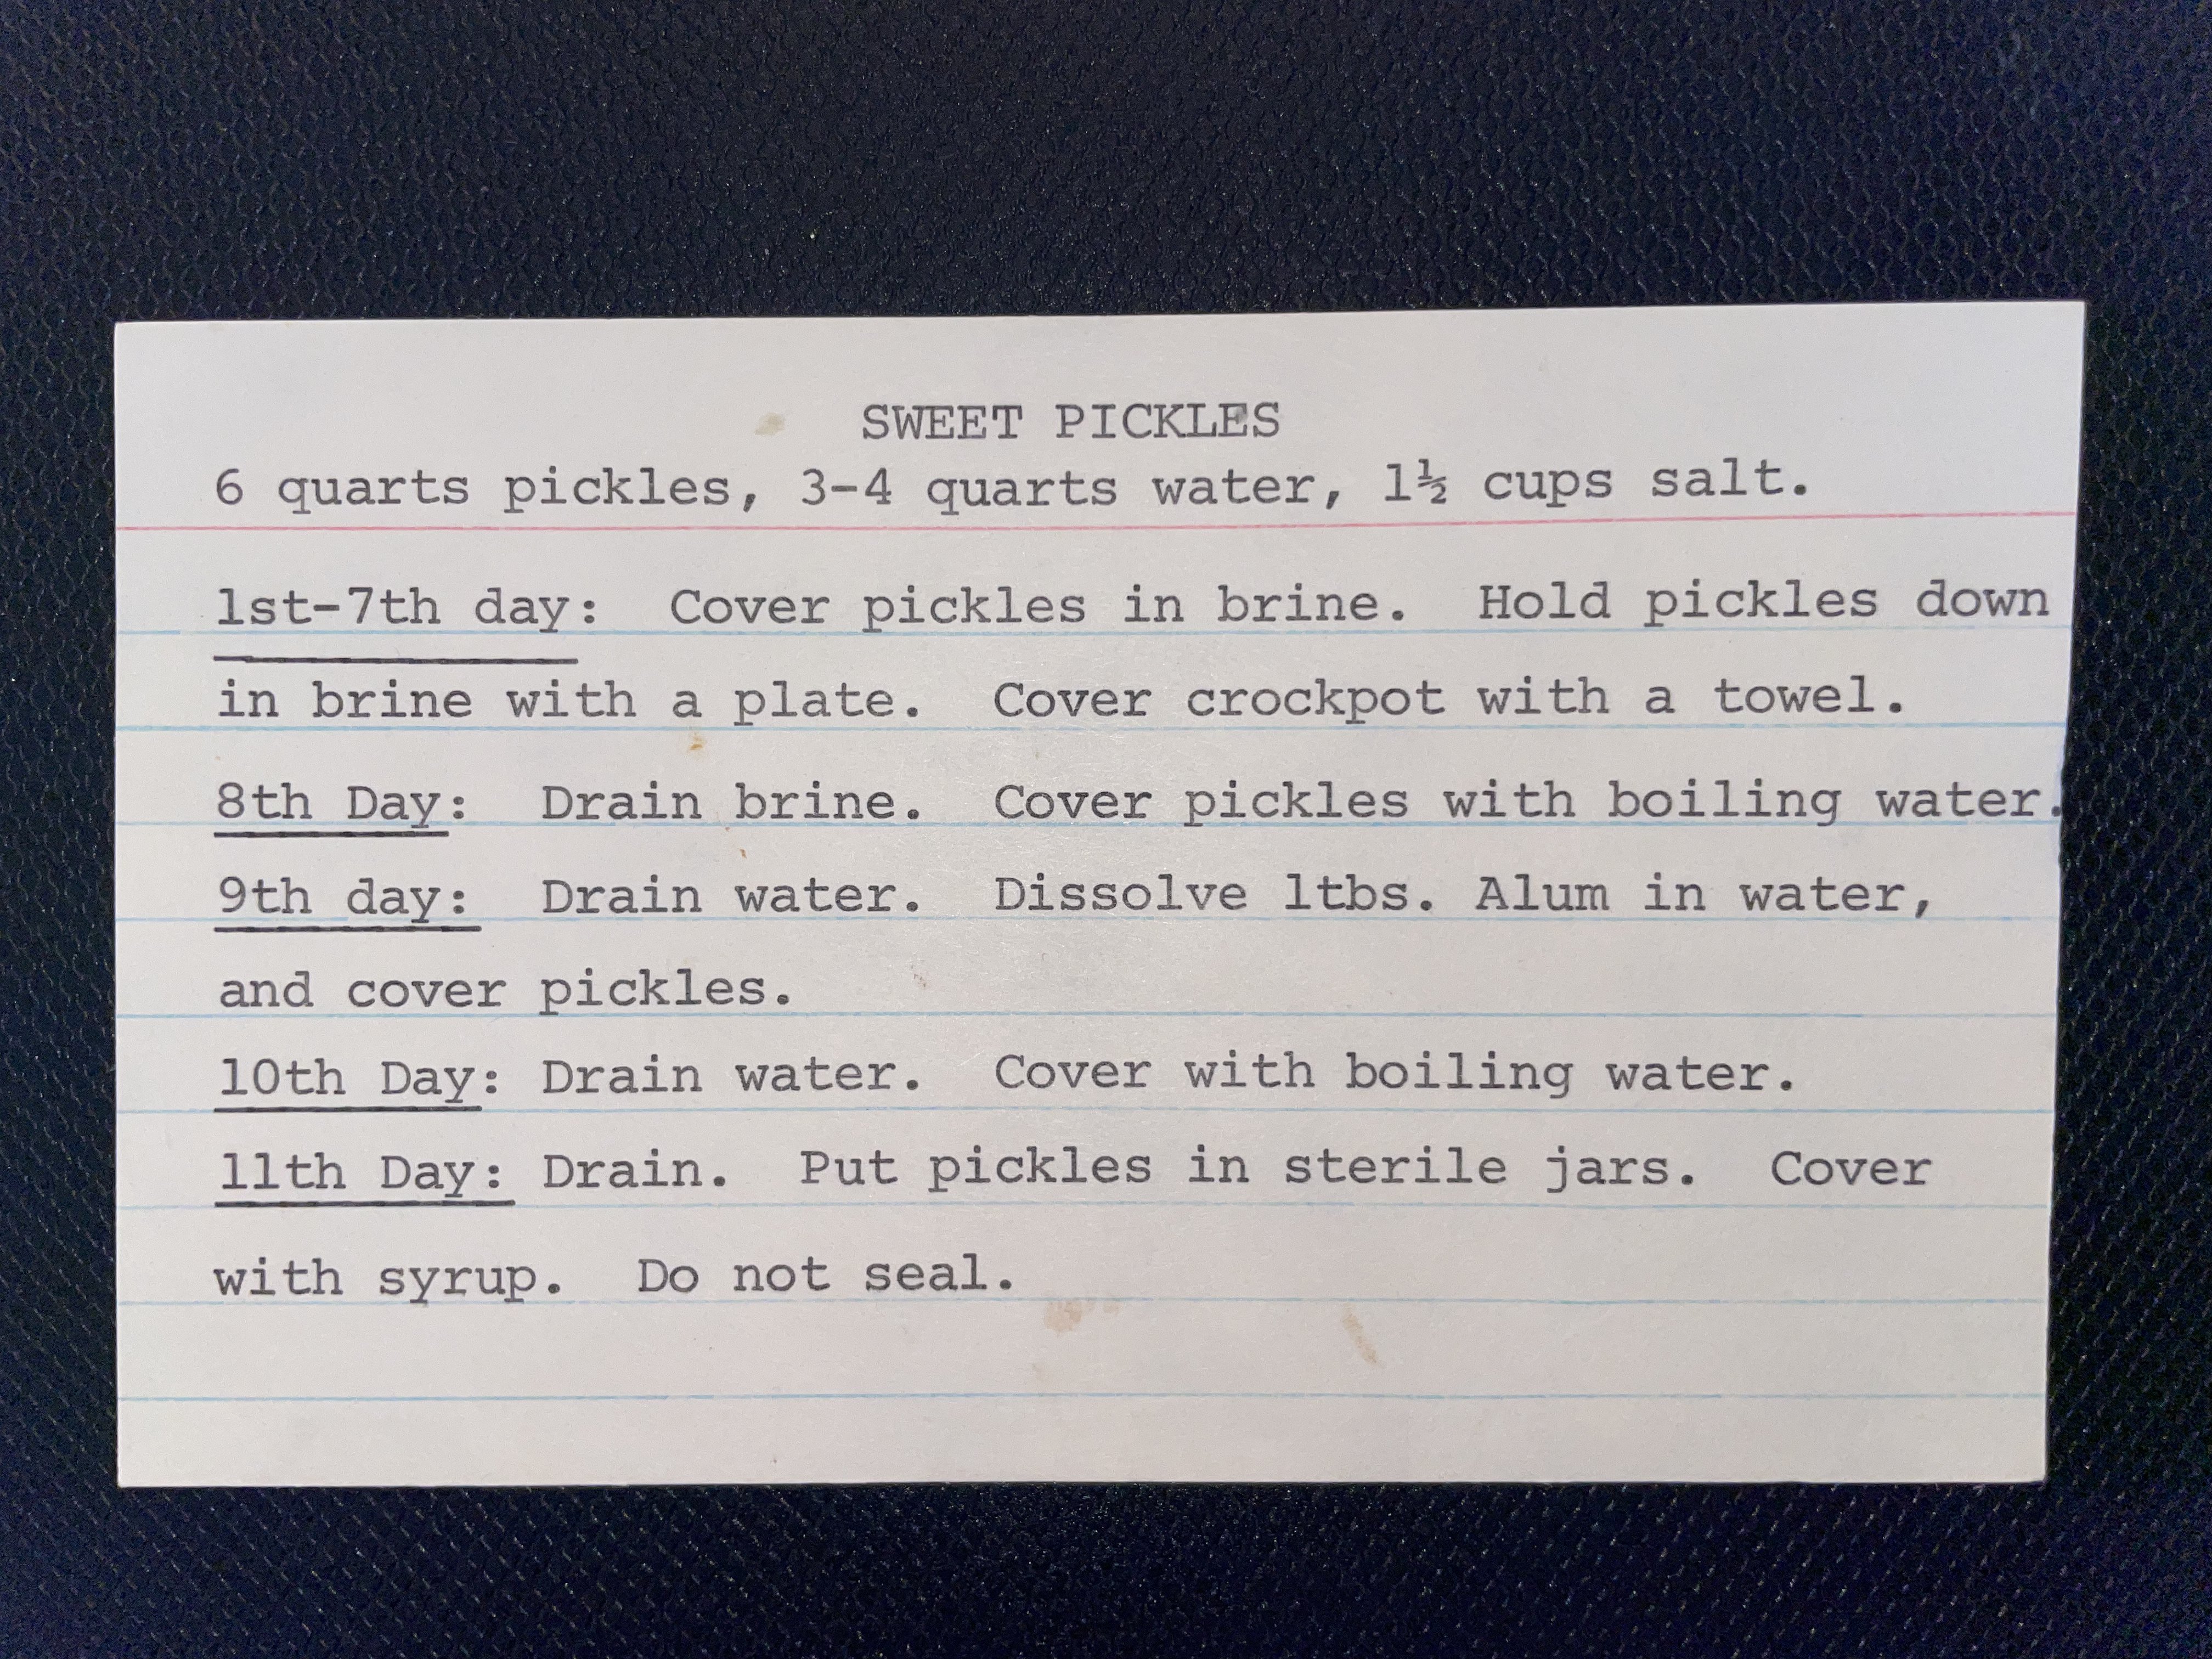 SWEET PICKLES
6 quarts pickles, 3-4 quarts water, 1½ cups salt.
1st-7th day:  Cover pickles in brine.  Hold pickles down
in brine with a plate.  Cover crockpot with a towel.
8th Day:  Drain brine.  Cover pickles with boiling water.
9th day:  Drain water.  Dissolve 1tbs. Alum in water,
and cover pickles.
10th Day: Drain water.  Cover with boiling water.
11th Day: Drain.  Put pickles in sterile jars.  Cover
with syrup.  Do not seal.